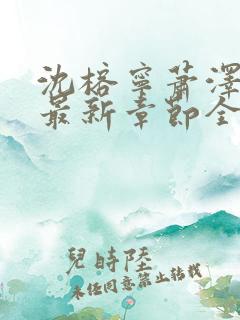 沈榕寧蕭澤
最新章節全
兒時陸
未經同意禁止轉載